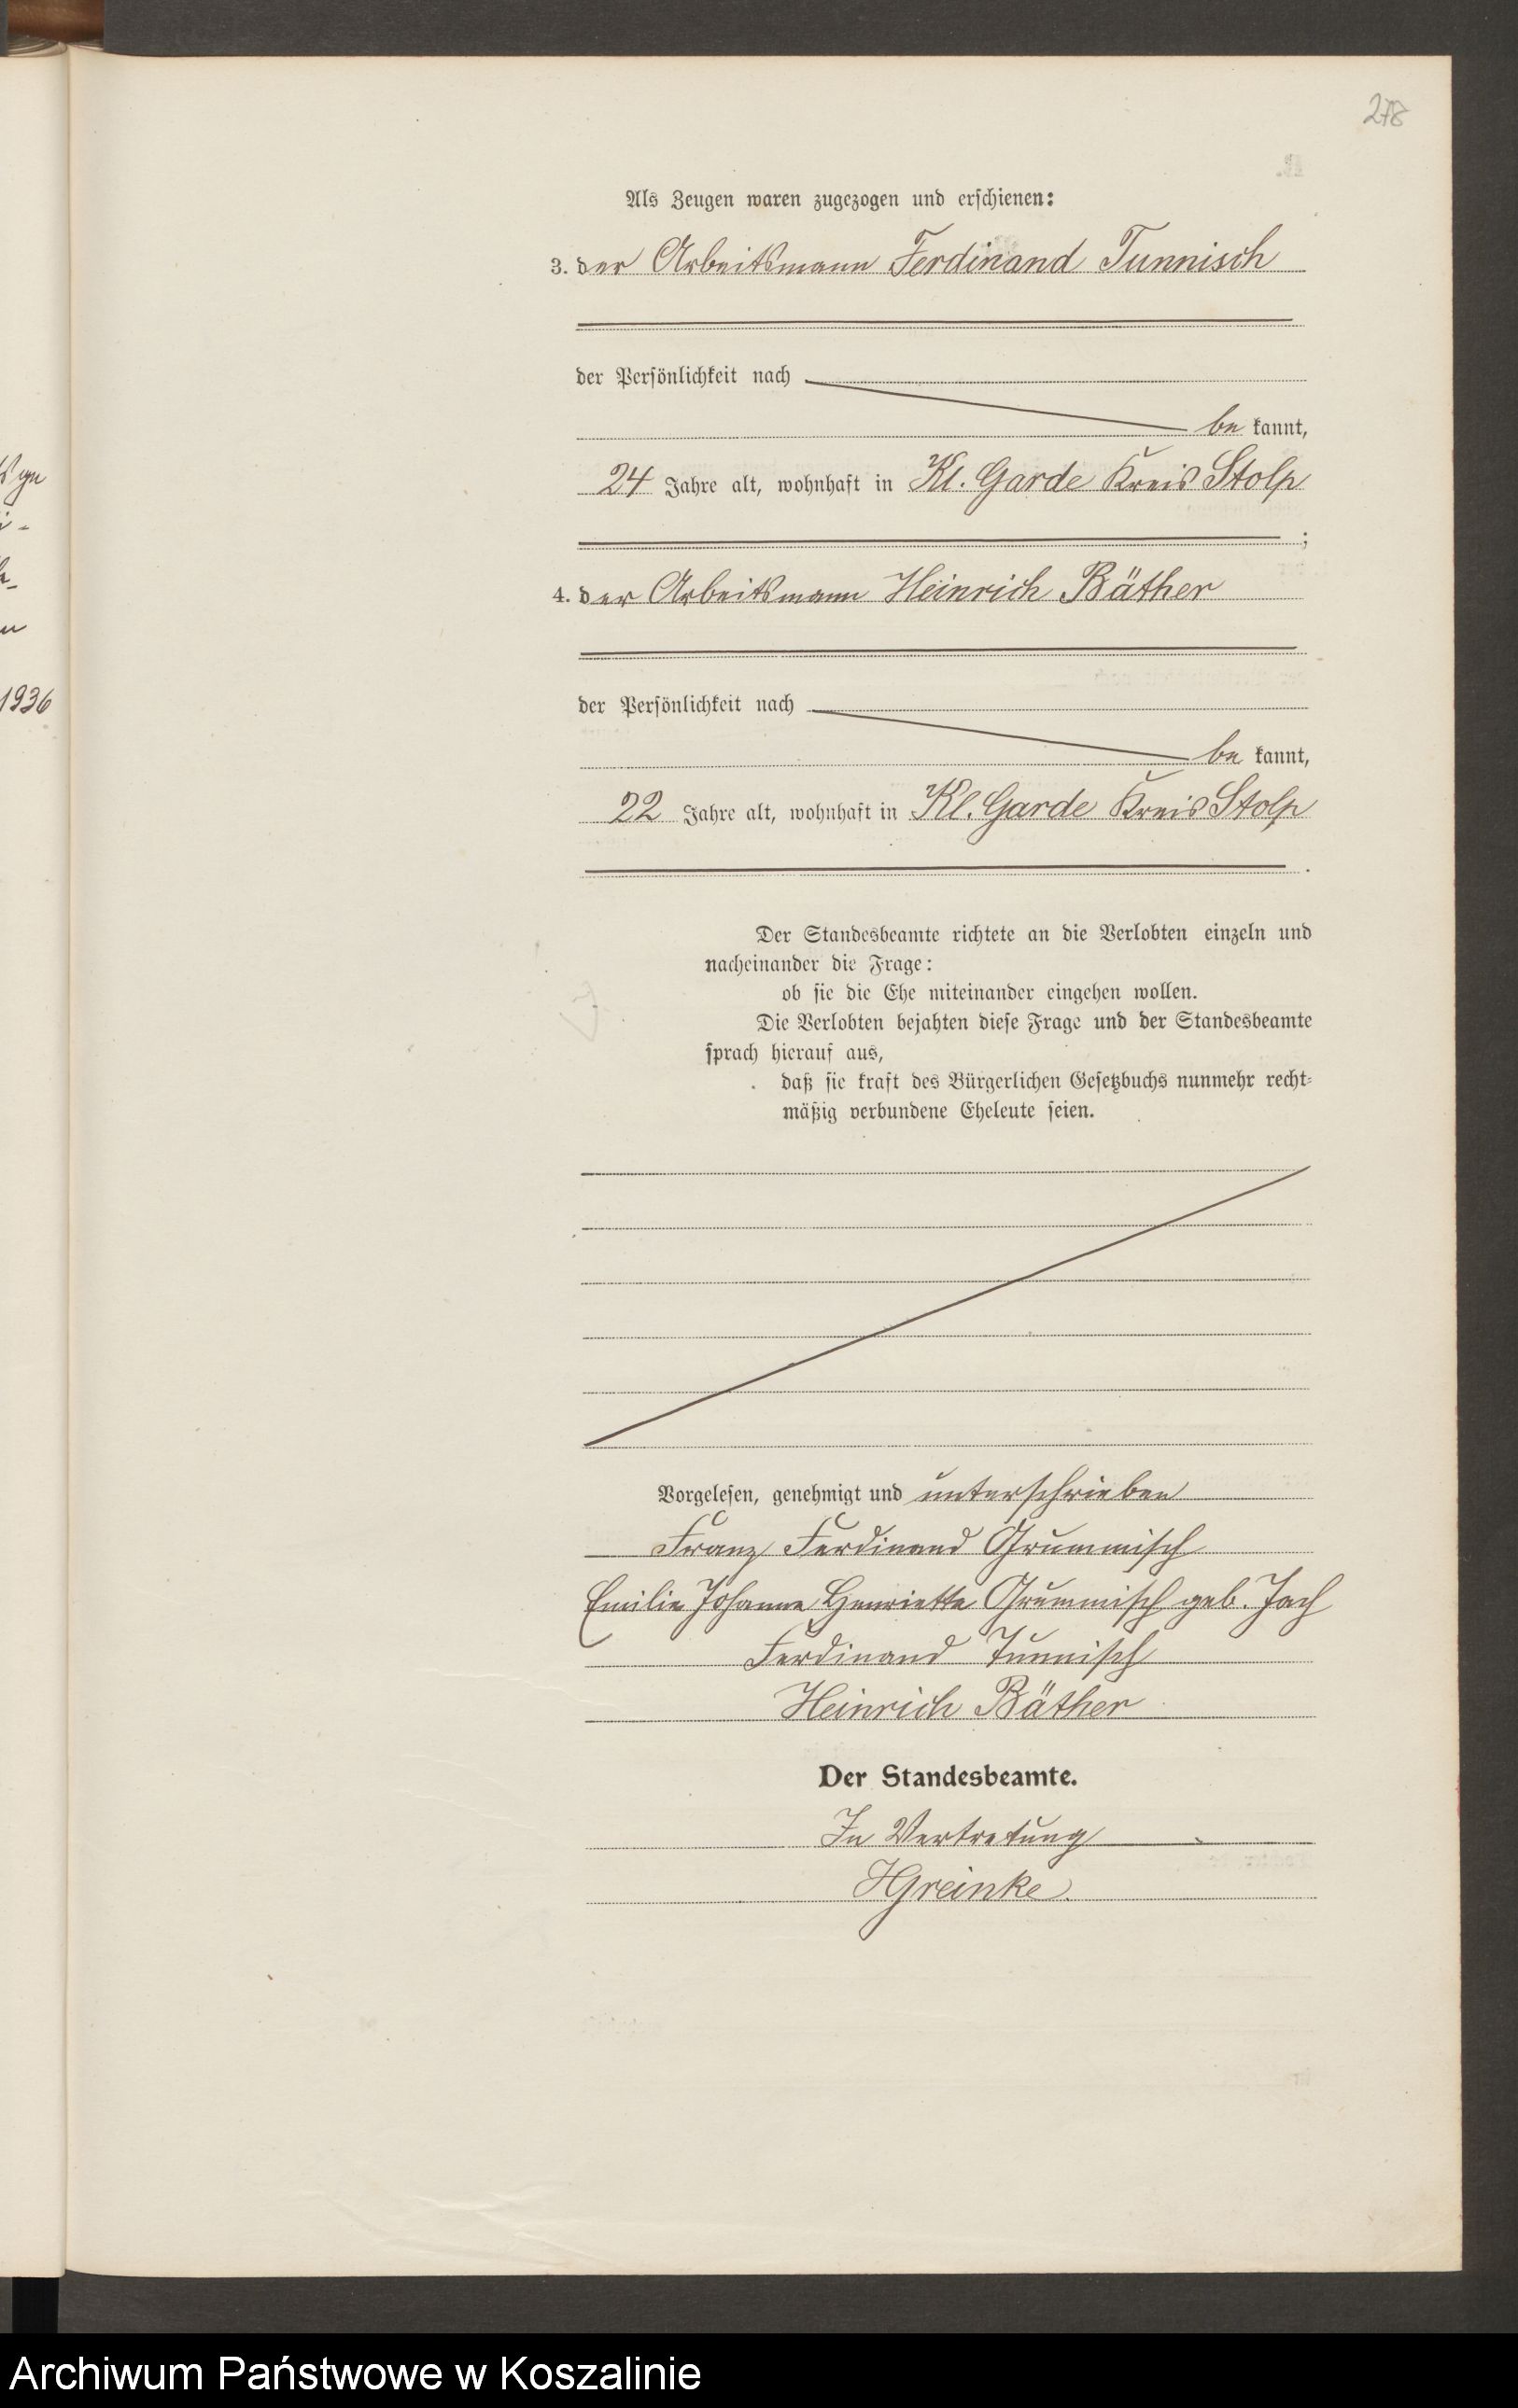 278
Als Zeugen waren zugezogen und erschienen:
3. der Arbeitsmann Ferdinand Tunnisch
der Persönlichkeit nach
be kannt,
24 Jahre alt, wohnhaft in Kl. Garde Kreis Stolp
;
4. der Arbeitsmann Heinrich Bäther
der Persönlichkeit nach
be kannt,
22 Jahre alt, wohnhaft in Kl. Garde Kreis Stolp
.
Der Standesbeamte richtete an die Verlobten einzeln und
nacheinander die Frage:
ob sie die Ehe miteinander eingehen wollen.
Die Verlobten bejahten diese Frage und der Standesbeamte
sprach hierauf aus,
daß sie kraft des Bürgerlichen Gesetzbuchs nunmehr recht-
mäßig verbundene Eheleute seien.
Vorgelesen, genehmigt und unterschrieben
Franz Ferdinand Grummisch
Emilie Johanne Henriette Grummisch geb. Jach
Ferdinand Tunnisch
Heinrich Bäther
Der Standesbeamte.
In Vertretung
HGreinke.
1936
Archiwum Państwowe w Koszalinie